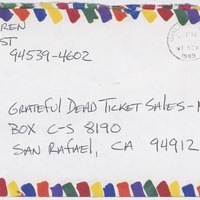 REN
ST
94539-4602
PM
1989
GRATEFUL DEAD TICKET SALES-M
BOX C-S 8190
SAN RAFAEL, CA 94912